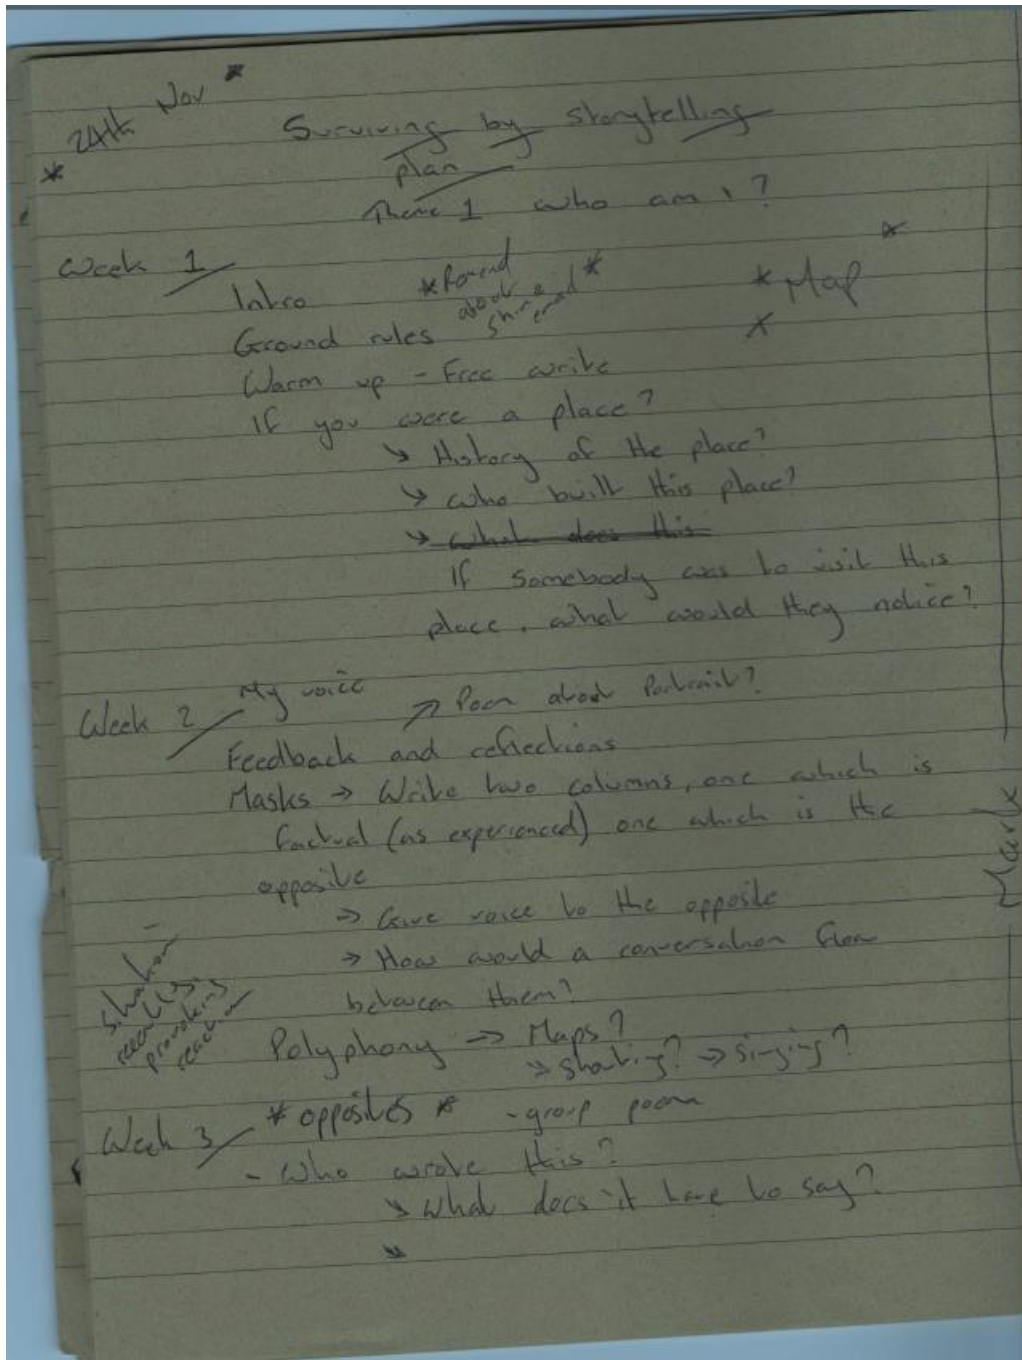 * 24th Nov *
Surviving by storytelling
plan
Theme 1 who am i?
Week 1
Intro
*Round
about
* Map *
Ground rules
Warm up - Free write
If you were a place?
History of the place?
who built this place?
what does this
If somebody was to visit this
place, what would they notice?
Week 2 My voice
Poem about Portrait?
Feedback and reflections
Masks → Write two columns, one which is
factual (as experienced) one which is the
opposite
→ Give voice to the opposite
→ How would a conversation flow
between them?
situation -
provoking
reaction
Polyphony → Maps?
→ shouting? → singing?
Week 3 * opposites * - group poem
- Who wrote this?
What does it have to say?